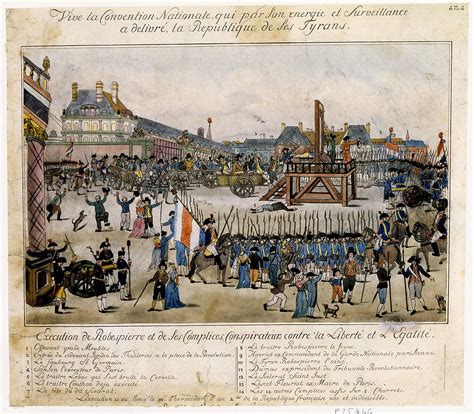 Vive la Convention Nationale, qui par Son energie et Surveillance
a delivré, la Republique de Ses Tyrans.
Execution de Robespierre et de Ses Complices, Conspirateurs contre la Liberté et L'Egalité.
1 garde Meubles
2 Entrée du Jardin des Thuileries a la place de la Revolution.
3 Le faubourg St Germain.
4 Sanson Executeur de Paris.
5 Le traitre Lebas qui S'est brulé la Cervelle.
6 Le traitre Couthon deja executé.
7 La tete du dit Scelerat
8 Le traitre Robespierre le Jeune.
9 Hanriot ex Commandant de la Garde Nationale parisienne.
10 Le Tyran Robespierre l'ainé.
11 Dumas expresident du Tribunal Revolutionnaire.
12 L'infame Saint Just.
13 Lescot Fleuriot ex Maire de Paris.
14 Les autres Complices dans Charrete.
L'execution a eu lieu le 10 Thermidor l'an 2 de la Republique française une et indivisible.
P.75.266